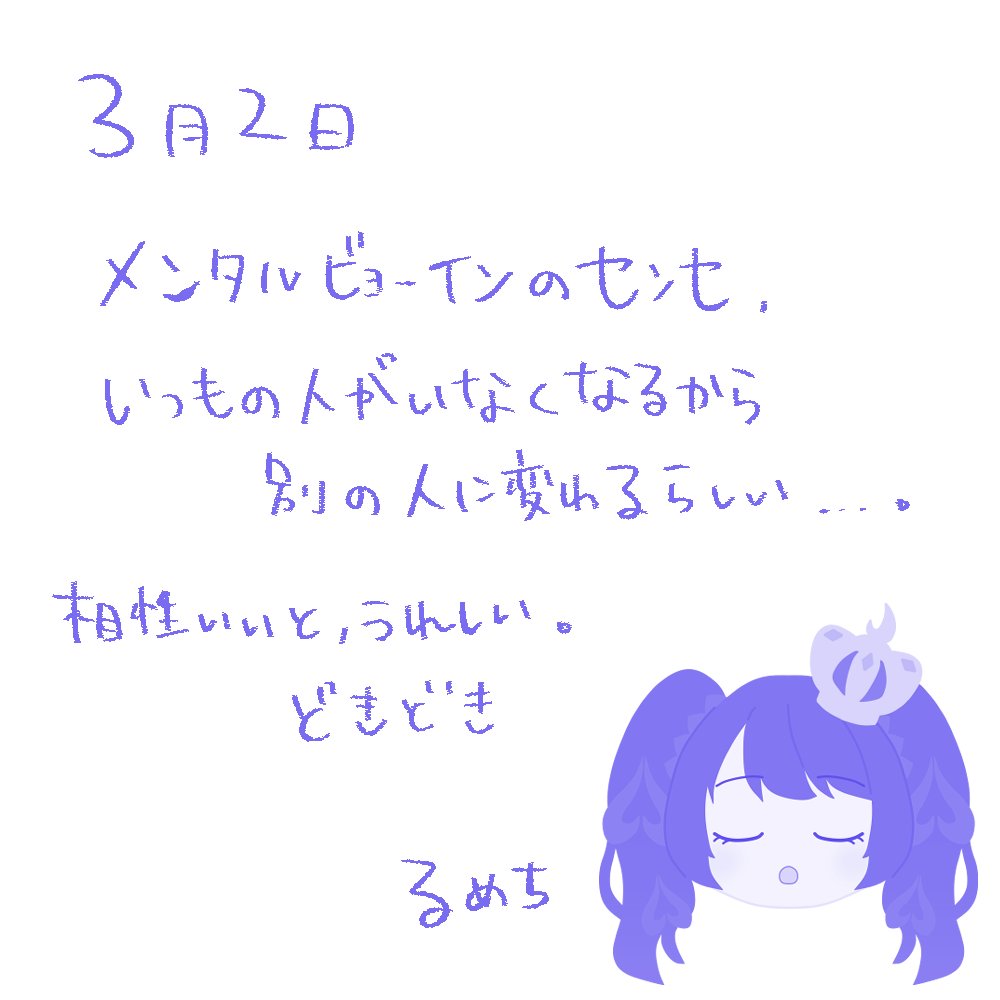 3月2日
メンタルビョーインのセンセ,
いつもの人がいなくなるから
別の人に変わるらしい...。
相性いいと,うれしい。
どきどき
るめち